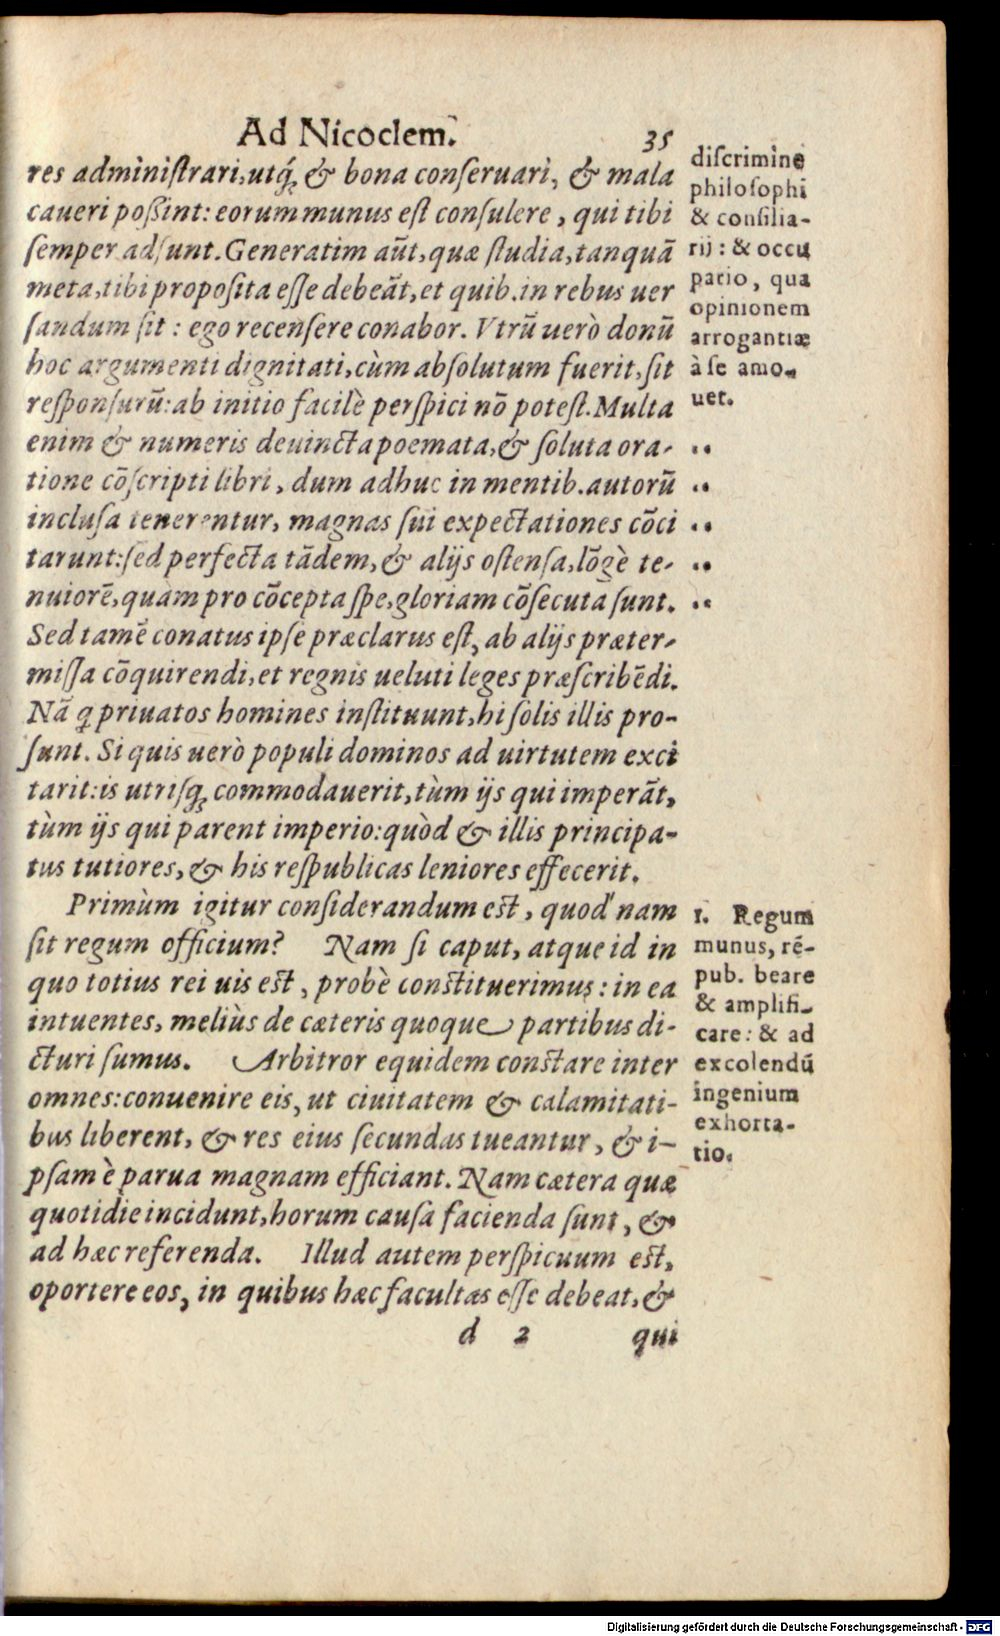 Ad Nicoclem. 35
res adminiſtrari, utq́ꝫ & bona conſeruari, & mala
caueri poßint: eorum munus eſt conſulere, qui tibi
ſemper adſunt. Generatim aũt, quæ ſtudia, tanquã
meta, tibi propoſita eſſe debeãt, et quib. in rebus uer
ſandum ſit: ego recenſere conabor. Vtrũ uerò donũ
hoc argumenti dignitati, cùm abſolutum fuerit, ſit
reſponſurũ: ab initio facilè perſpici nõ poteſt. Multa
enim & numeris deuincta poemata, & ſoluta ora-
tione cõſcripti libri, dum adhuc in mentib. autorũ
incluſa tenerentur, magnas ſui expectationes cõci
tarunt: ſed perfecta tãdem, & alijs oſtenſa, lõgè te-
nuiorẽ, quàm pro cõcepta ſpe, gloriam cõſecuta ſunt.
Sed tamẽ conatus ipſe præclarus eſt, ab alijs præter-
miſſa cõquirendi, et regnis ueluti leges præſcribẽdi.
Nã q priuatos homines inſtituunt, hi ſolis illis pro-
ſunt. Si quis uerò populi dominos ad uirtutem exci
tarit: is utriſqꝫ commodauerit, tùm ijs qui imperãt,
tùm ijs qui parent imperio: quòd & illis principa-
tus tutiores, & his reſpublicas leniores effecerit.
Primùm igitur conſiderandum est, quod nam
ſit regum officium? Nam ſi caput, atque id in
quo totius rei uis est, probè constituerimus: in ea
intuentes, meliùs de cæteris quoque partibus di-
cturi ſumus. Arbitror equidem constare inter
omnes: conuenire eis, ut ciuitatem & calamitati-
bus liberent, & res eius ſecundas tueantur, & i-
pſam è parua magnam efficiant. Nam cætera quæ
quotidie incidunt, horum cauſa facienda ſunt, &
ad hæc referenda. Illud autem perſpicuum est,
oportere eos, in quibus hæc facultas eſſe debeat, &
d 2 qui
diſcrimine
philoſophi
& conſilia-
rij: & occu
patio, qua
opinionem
arrogantiæ
à ſe amo-
uet.
1. Regum
munus, rẽ-
pub. beare
& amplifi-
care: & ad
excolendũ
ingenium
exhorta-
tio.
Digitalisierung gefördert durch die Deutsche Forschungsgemeinschaft - DFG